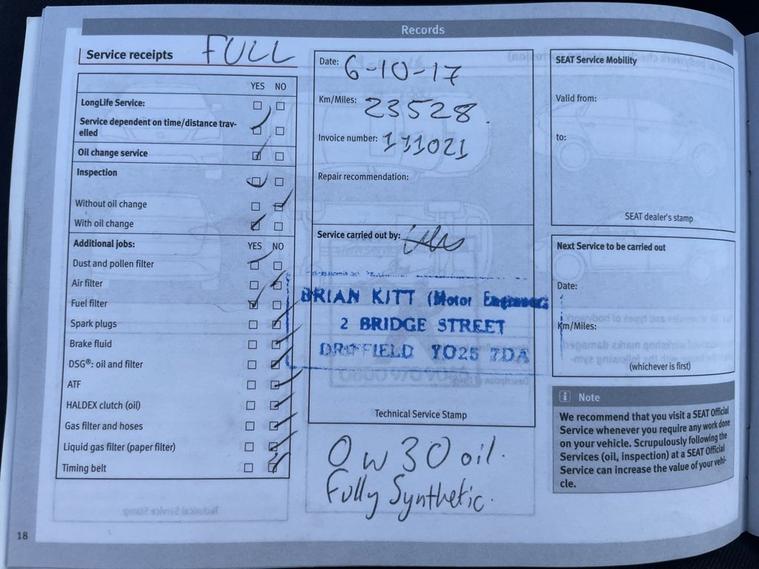 Records
Service receipts FULL
YES NO
LongLife Service:
Service dependent on time/distance trav-
elled
Oil change service
Inspection
Without oil change
With oil change
Additional jobs: YES NO
Dust and pollen filter
Air filter
Fuel filter
Spark plugs
Brake fluid
DSG®: oil and filter
ATF
HALDEX clutch (oil)
Gas filter and hoses
Liquid gas filter (paper filter)
Timing belt
18
Date: 6-10-17
Km/Miles: 23528.
Invoice number: 111021
Repair recommendation:
Service carried out by:
BRIAN KITT (Motor Engineer)
2 BRIDGE STREET
DRIFFIELD YO25 7DA
Technical Service Stamp
0w30 oil.
Fully Synthetic.
SEAT Service Mobility
Valid from:
to:
SEAT dealer's stamp
Next Service to be carried out
Date:
Km/Miles:
(whichever is first)
Note
We recommend that you visit a SEAT Official
Service whenever you require any work done
on your vehicle. Scrupulously following the
Services (oil, inspection) at a SEAT Official
Service can increase the value of your vehi-
cle.